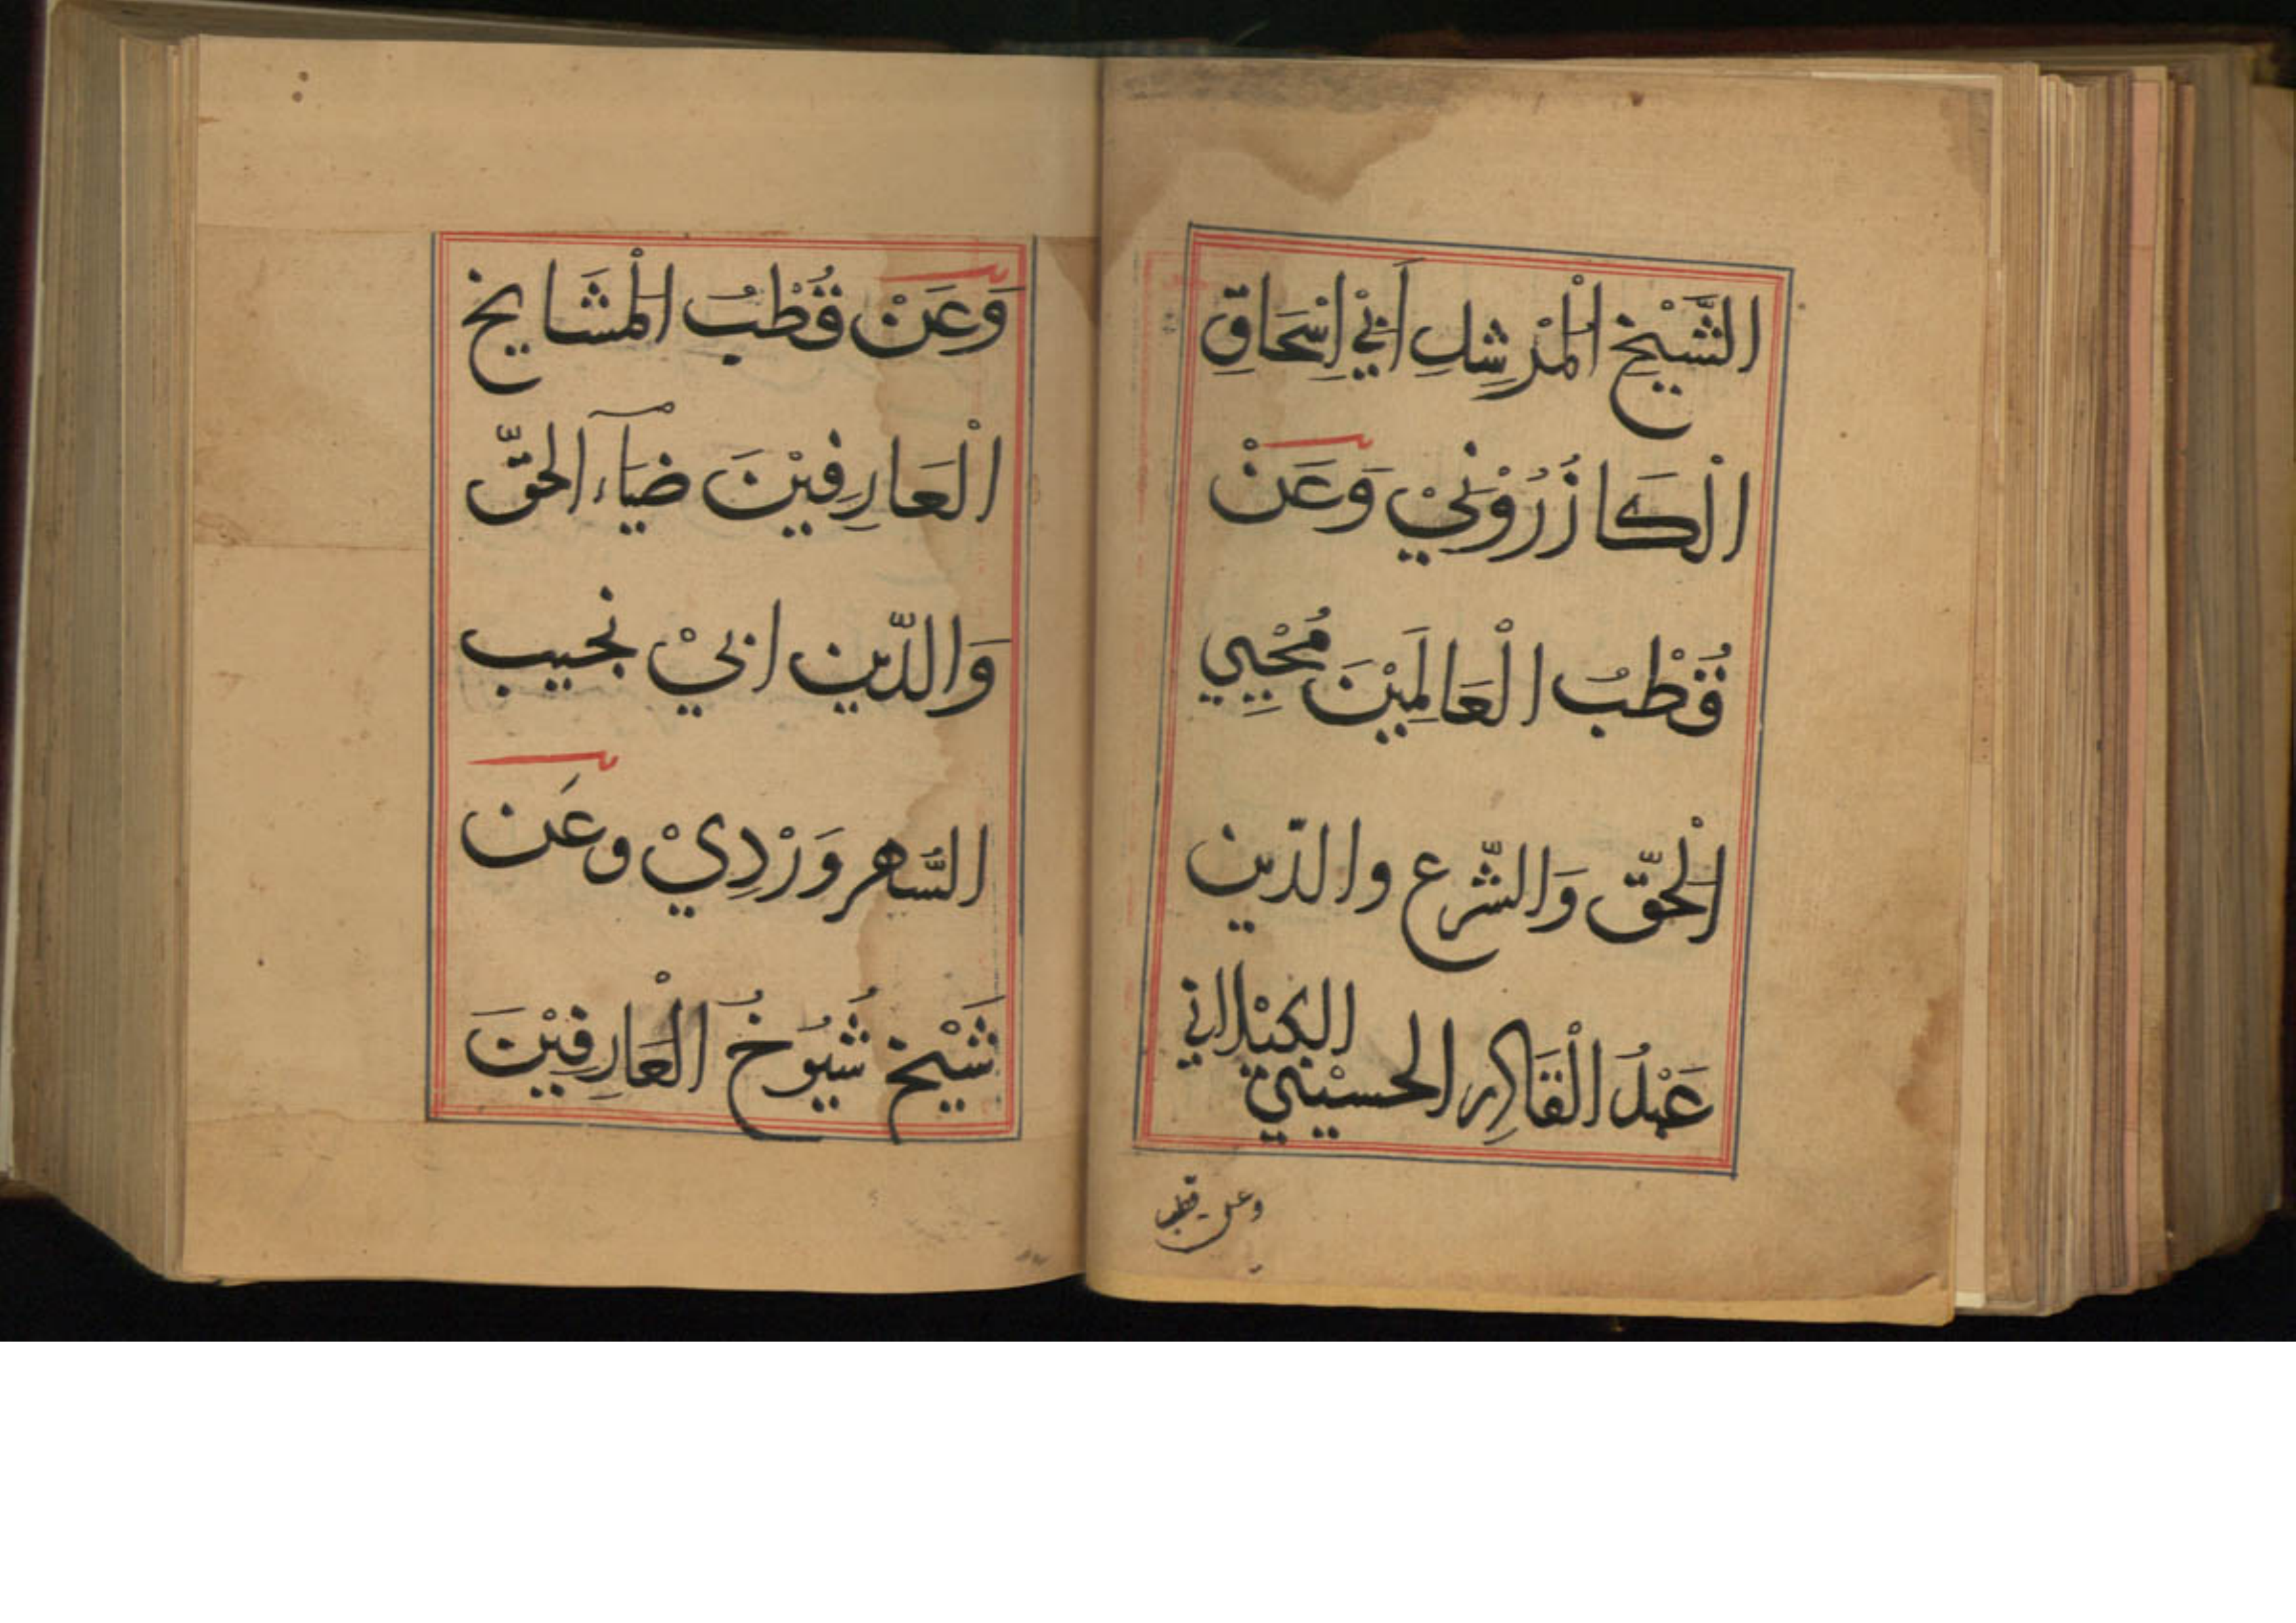 الشَّيْخِ الْمُرْشِدِ أَبِيْ إِسْحَاقِ
الْكَازَرُوْنِيْ وَعَنْ
قُطْبُ الْعَالَمِيْنَ مُحْيِي
الْحَقّ وَالشَّرع والدّين
عَبْدُ الْقَادِر الحسيْنِي الكَيْلاني
وعن قطب
وَعَنْ قُطْبُ الْمَشَايخ
الْعَارِفِيْنَ ضيَآء الحَقّ
وَالدّين ابيْ نجيب
السُّهروَرْدِيْ وعَن
شَيْخ شُيُوخُ الْعَارِفِيْنَ